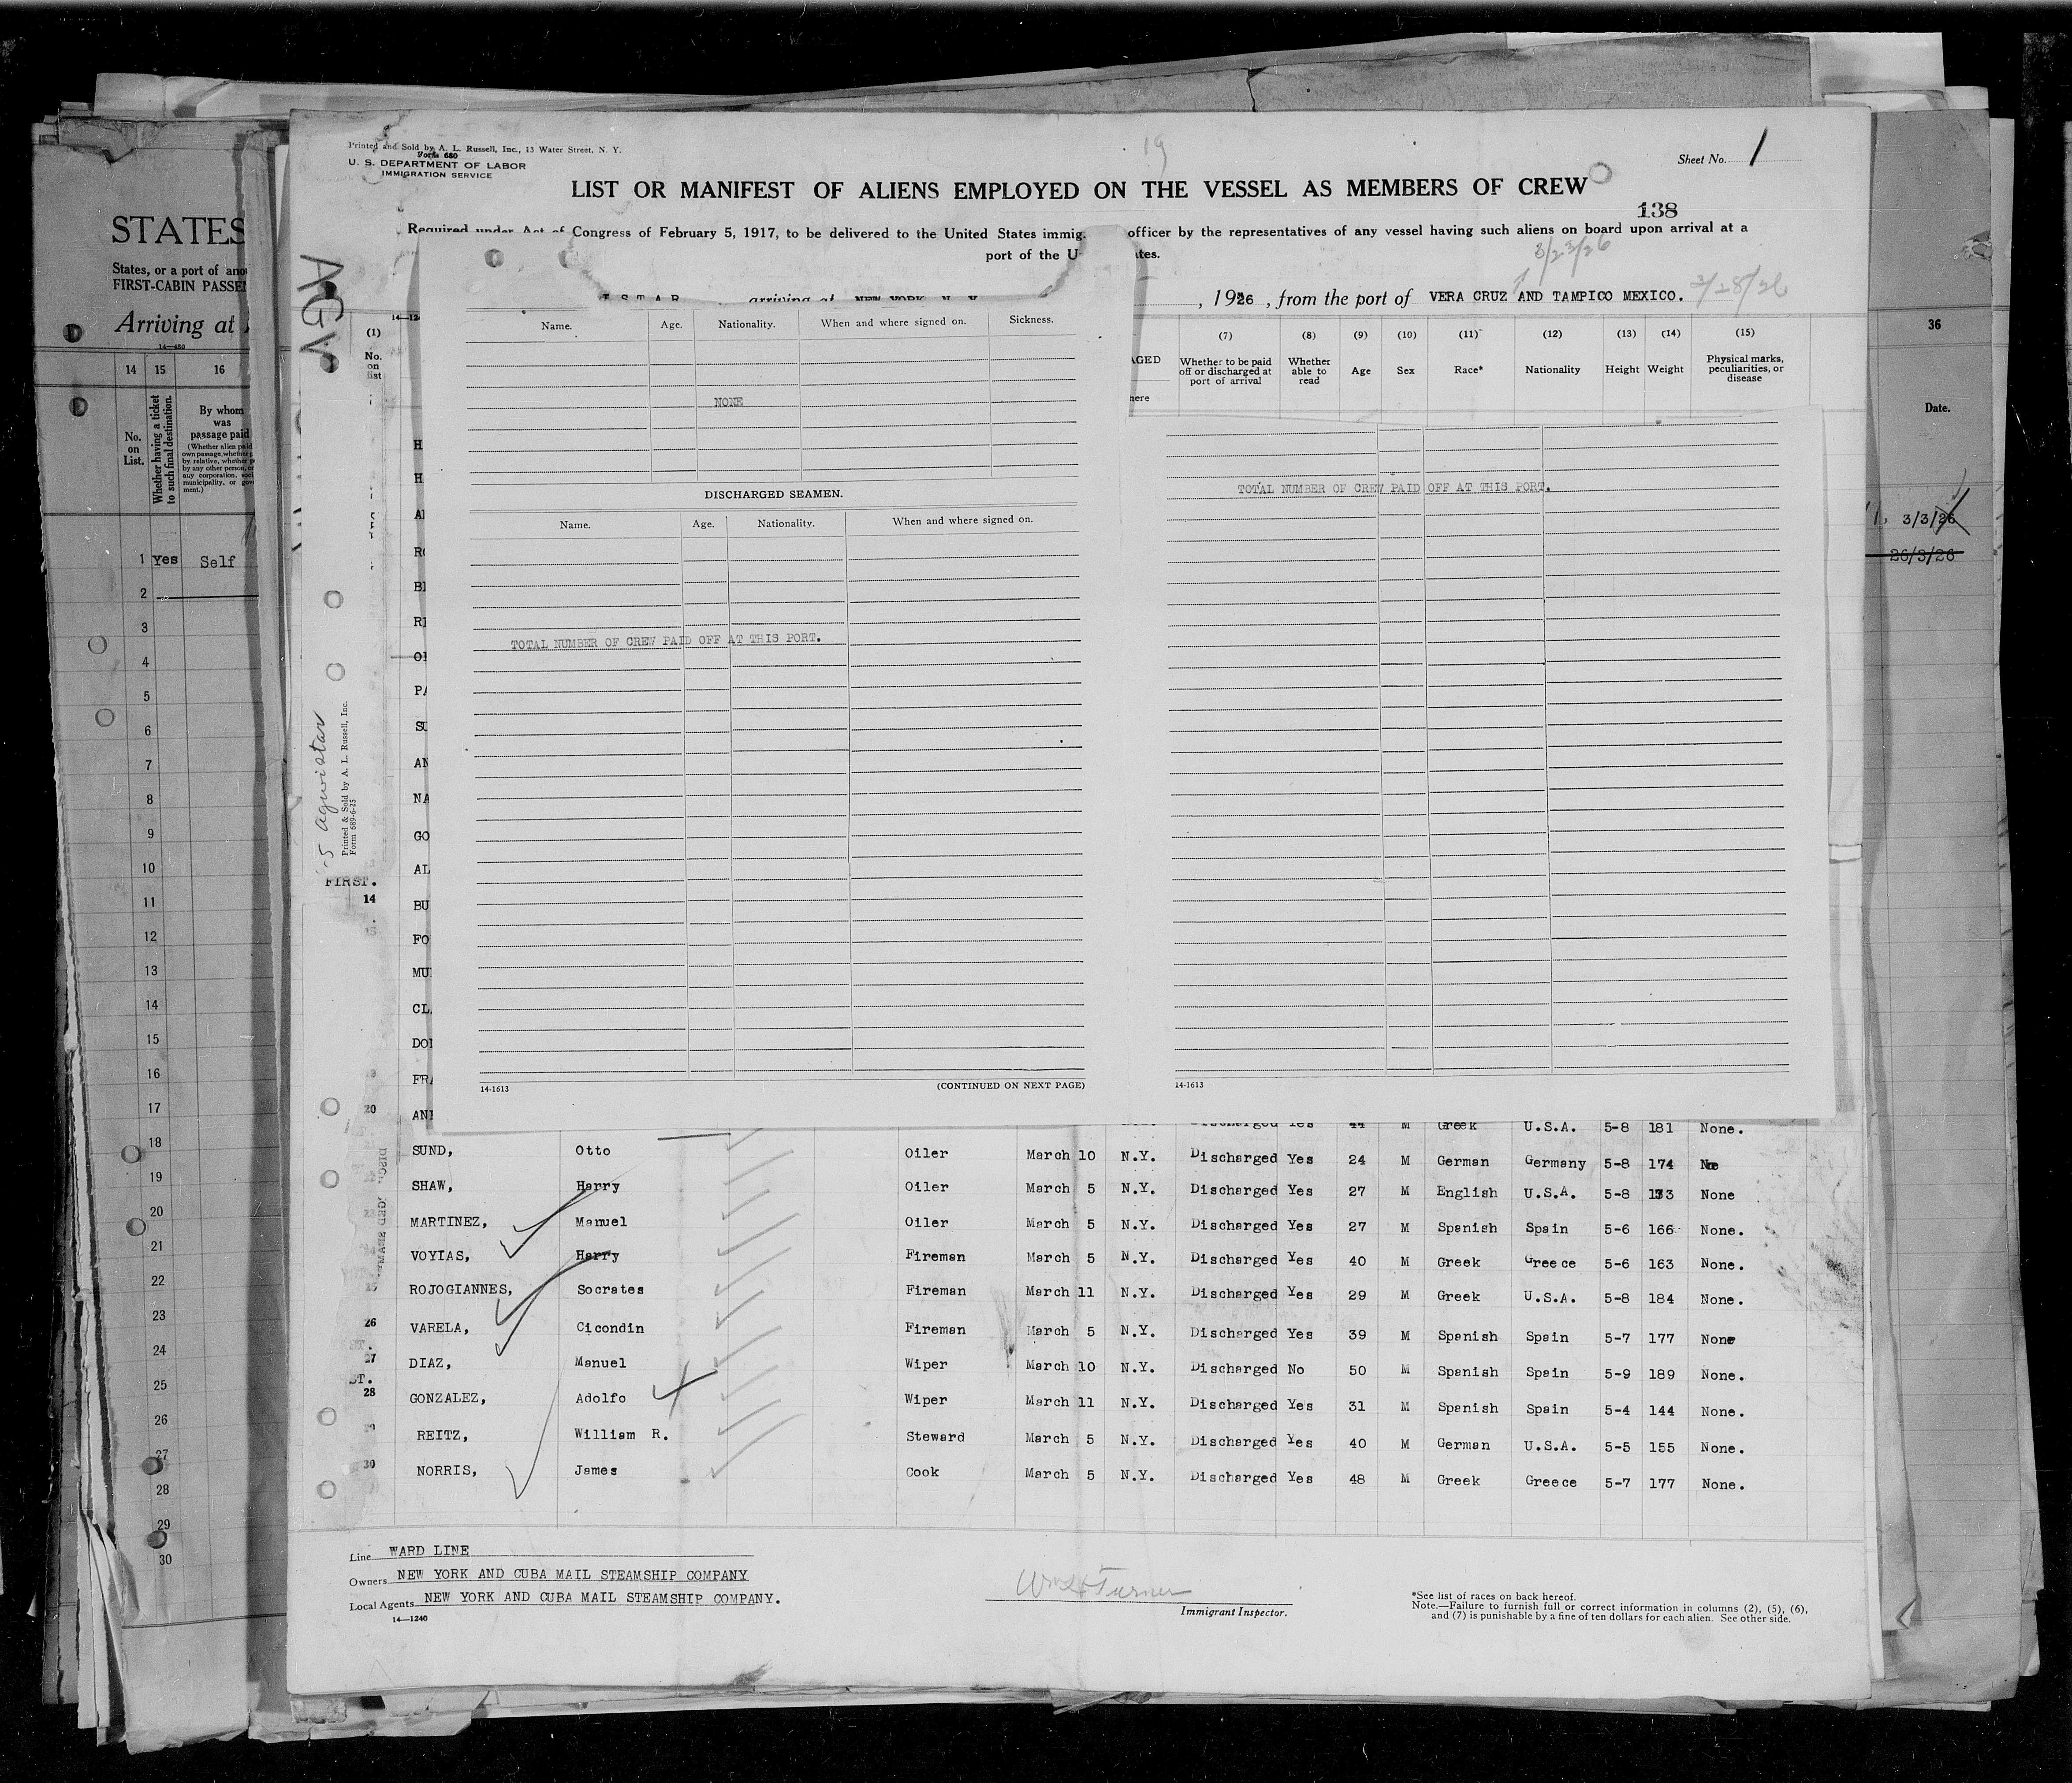 Printed and Sold by A. L. Russell, Inc., 13 Water Street, N. Y.
Form 680
U. S. DEPARTMENT OF LABOR
IMMIGRATION SERVICE
19
Sheet No. 1
LIST OR MANIFEST OF ALIENS EMPLOYED ON THE VESSEL AS MEMBERS OF CREW
138
Required under Act of Congress of February 5, 1917, to be delivered to the United States immig officer by the representatives of any vessel having such aliens on board upon arrival at a
port of the U tes.
3/23/26
arriving at NEW YORK N. Y
, 1926, from the port of VERA CRUZ AND TAMPICO MEXICO.
AGV
(1)
No. on list
Name. Age. Nationality. When and where signed on. Sickness.
NONE
DISCHARGED SEAMEN.
Name. Age. Nationality. When and where signed on.
TOTAL NUMBER OF CREW PAID OFF AT THIS PORT.
14-1613 (CONTINUED ON NEXT PAGE)
AGED
here
(7) Whether to be paid off or discharged at port of arrival
(8) Whether able to read
(9) Age
(10) Sex
(11) Race*
(12) Nationality
(13) Height
(14) Weight
(15) Physical marks, peculiarities, or disease
TOTAL NUMBER OF CREW PAID OFF AT THIS PORT.
14-1613
STATES
States, or a port of ano
FIRST-CABIN PASSE
Arriving at
14—480
14 15 16
No. on List.
Whether having a ticket to such final destination.
By whom was passage paid
(Whether alien paid own passage, whether by relative, whether by any other person, or any corporation, municipality, or ment.)
1 Yes Self
2
3
4
5
6
7
8
9
10
11
12
13
14
15
16
17
18
19
20
21
22
23
24
25
26
27
28
29
30
36
Date.
3/3/26
26/3/26
Agwistar
Printed & Sold by A. L. Russell, Inc.
Form 689-6-25
FIRST.
14
H
H
BU
FO
CL
FR
20
44 M Greek U.S.A. 5-8 181 None.
SUND, Otto Oiler March 10 N.Y. Discharged Yes 24 M German Germany 5-8 174
SHAW, Harry Oiler March 5 N.Y. Discharged Yes 27 M English U.S.A. 5-8 None
MARTINEZ, Manuel Oiler March 5 N.Y. Discharged Yes 27 M Spanish Spain 5-6 166 None.
VOYIAS, Harry Fireman March 5 N.Y. Discharged Yes 40 M Greek Greece 5-6 163 None.
25 ROJOGIANNES, Socrates Fireman March 11 N.Y. Discharged Yes 29 M Greek U.S.A. 5-8 184 None.
26 VARELA, Cicondin Fireman March 5 N.Y. Discharged Yes 39 M Spanish Spain 5-7 177 None
27 DIAZ, Manuel Wiper March 10 N.Y. Discharged No 50 M Spanish Spain 5-9 189 None.
28 GONZALEZ, Adolfo Wiper March 11 N.Y. Discharged Yes 31 M Spanish Spain 5-4 144 None.
REITZ, William R. Steward March 5 N.Y. Discharged Yes 40 M German U.S.A. 5-5 155 None.
30 NORRIS, James Cook March 5 N.Y. Discharged Yes 48 M Greek Greece 5-7 177 None.
Line WARD LINE
Owners NEW YORK AND CUBA MAIL STEAMSHIP COMPANY
Local Agents NEW YORK AND CUBA MAIL STEAMSHIP COMPANY.
14—1240
Turner
Immigrant Inspector.
*See list of races on back hereof.
Note.—Failure to furnish full or correct information in columns (2), (5), (6),
and (7) is punishable by a fine of ten dollars for each alien. See other side.